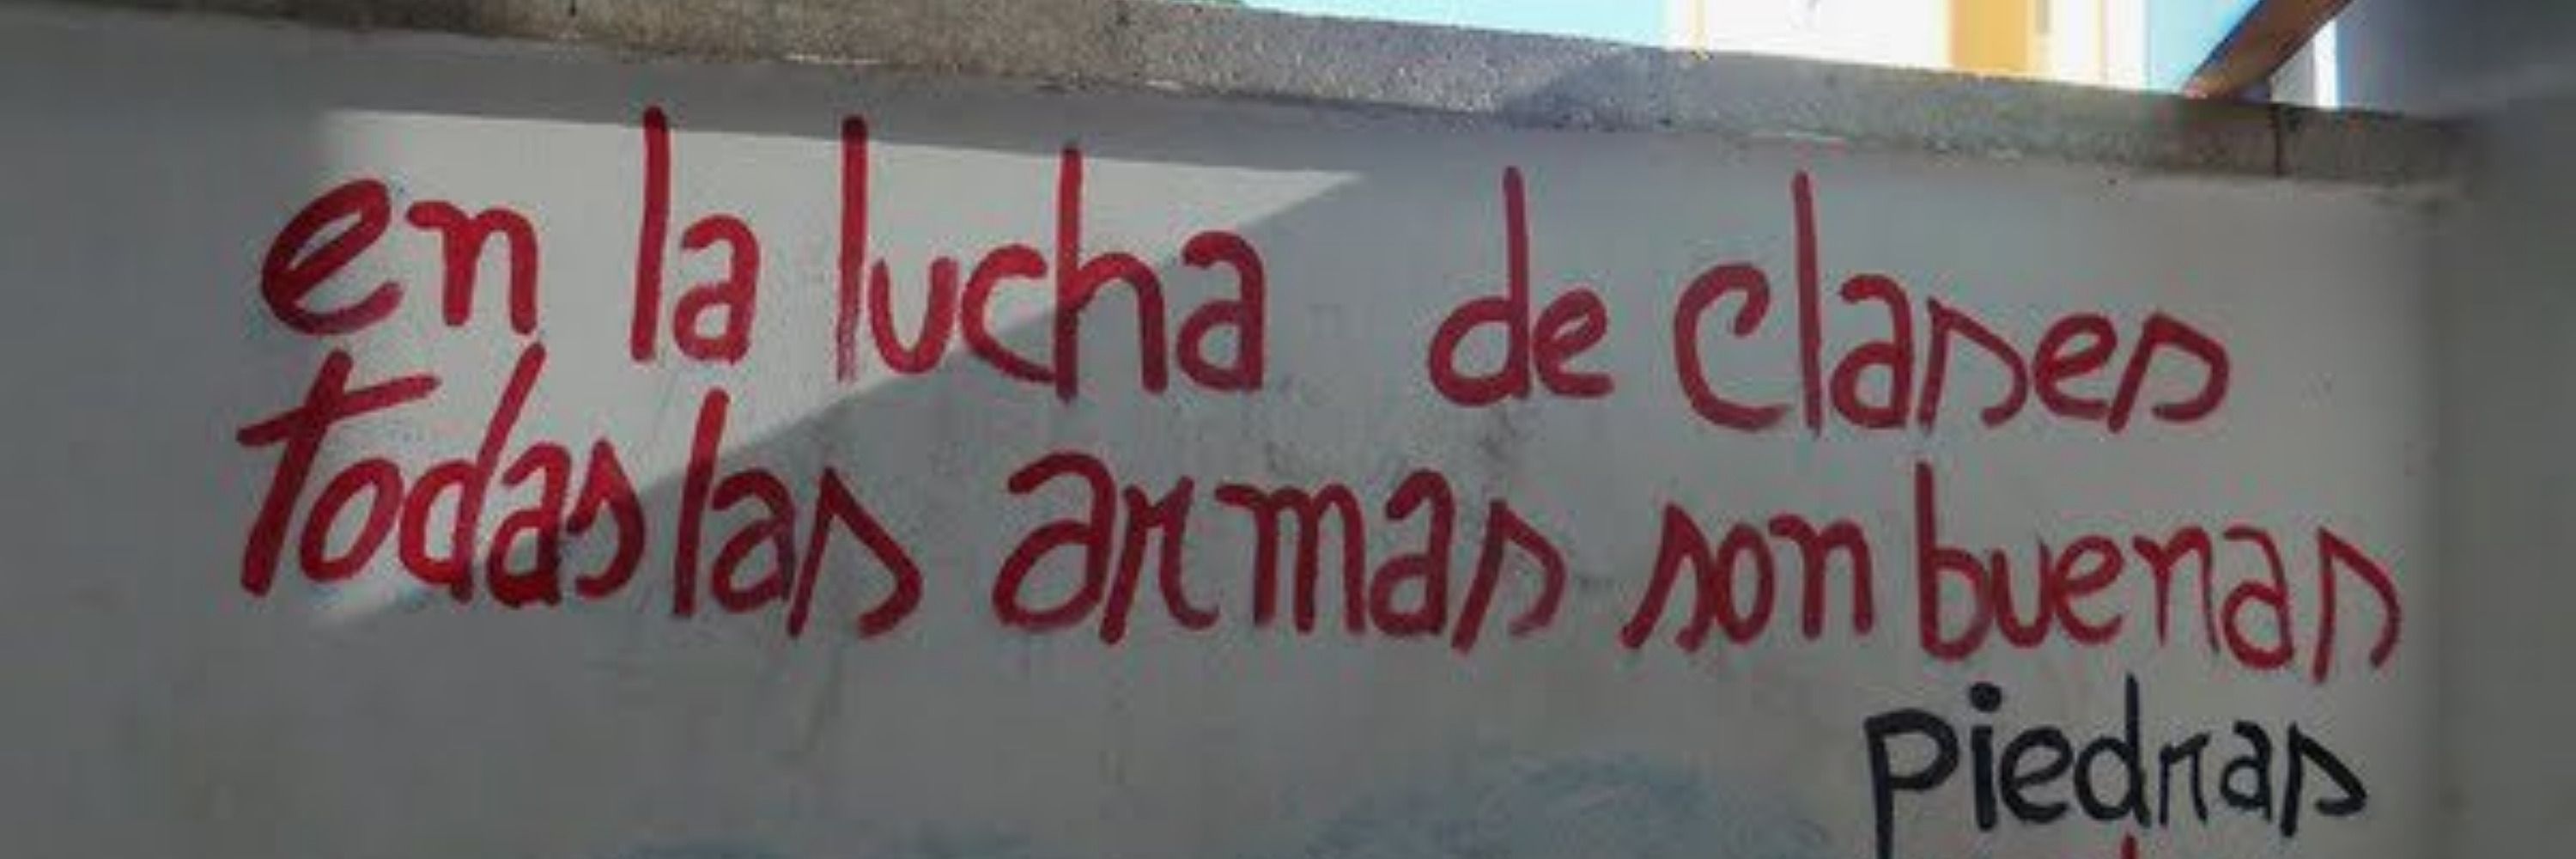 en la lucha de clases
todas las armas son buenas
piedras